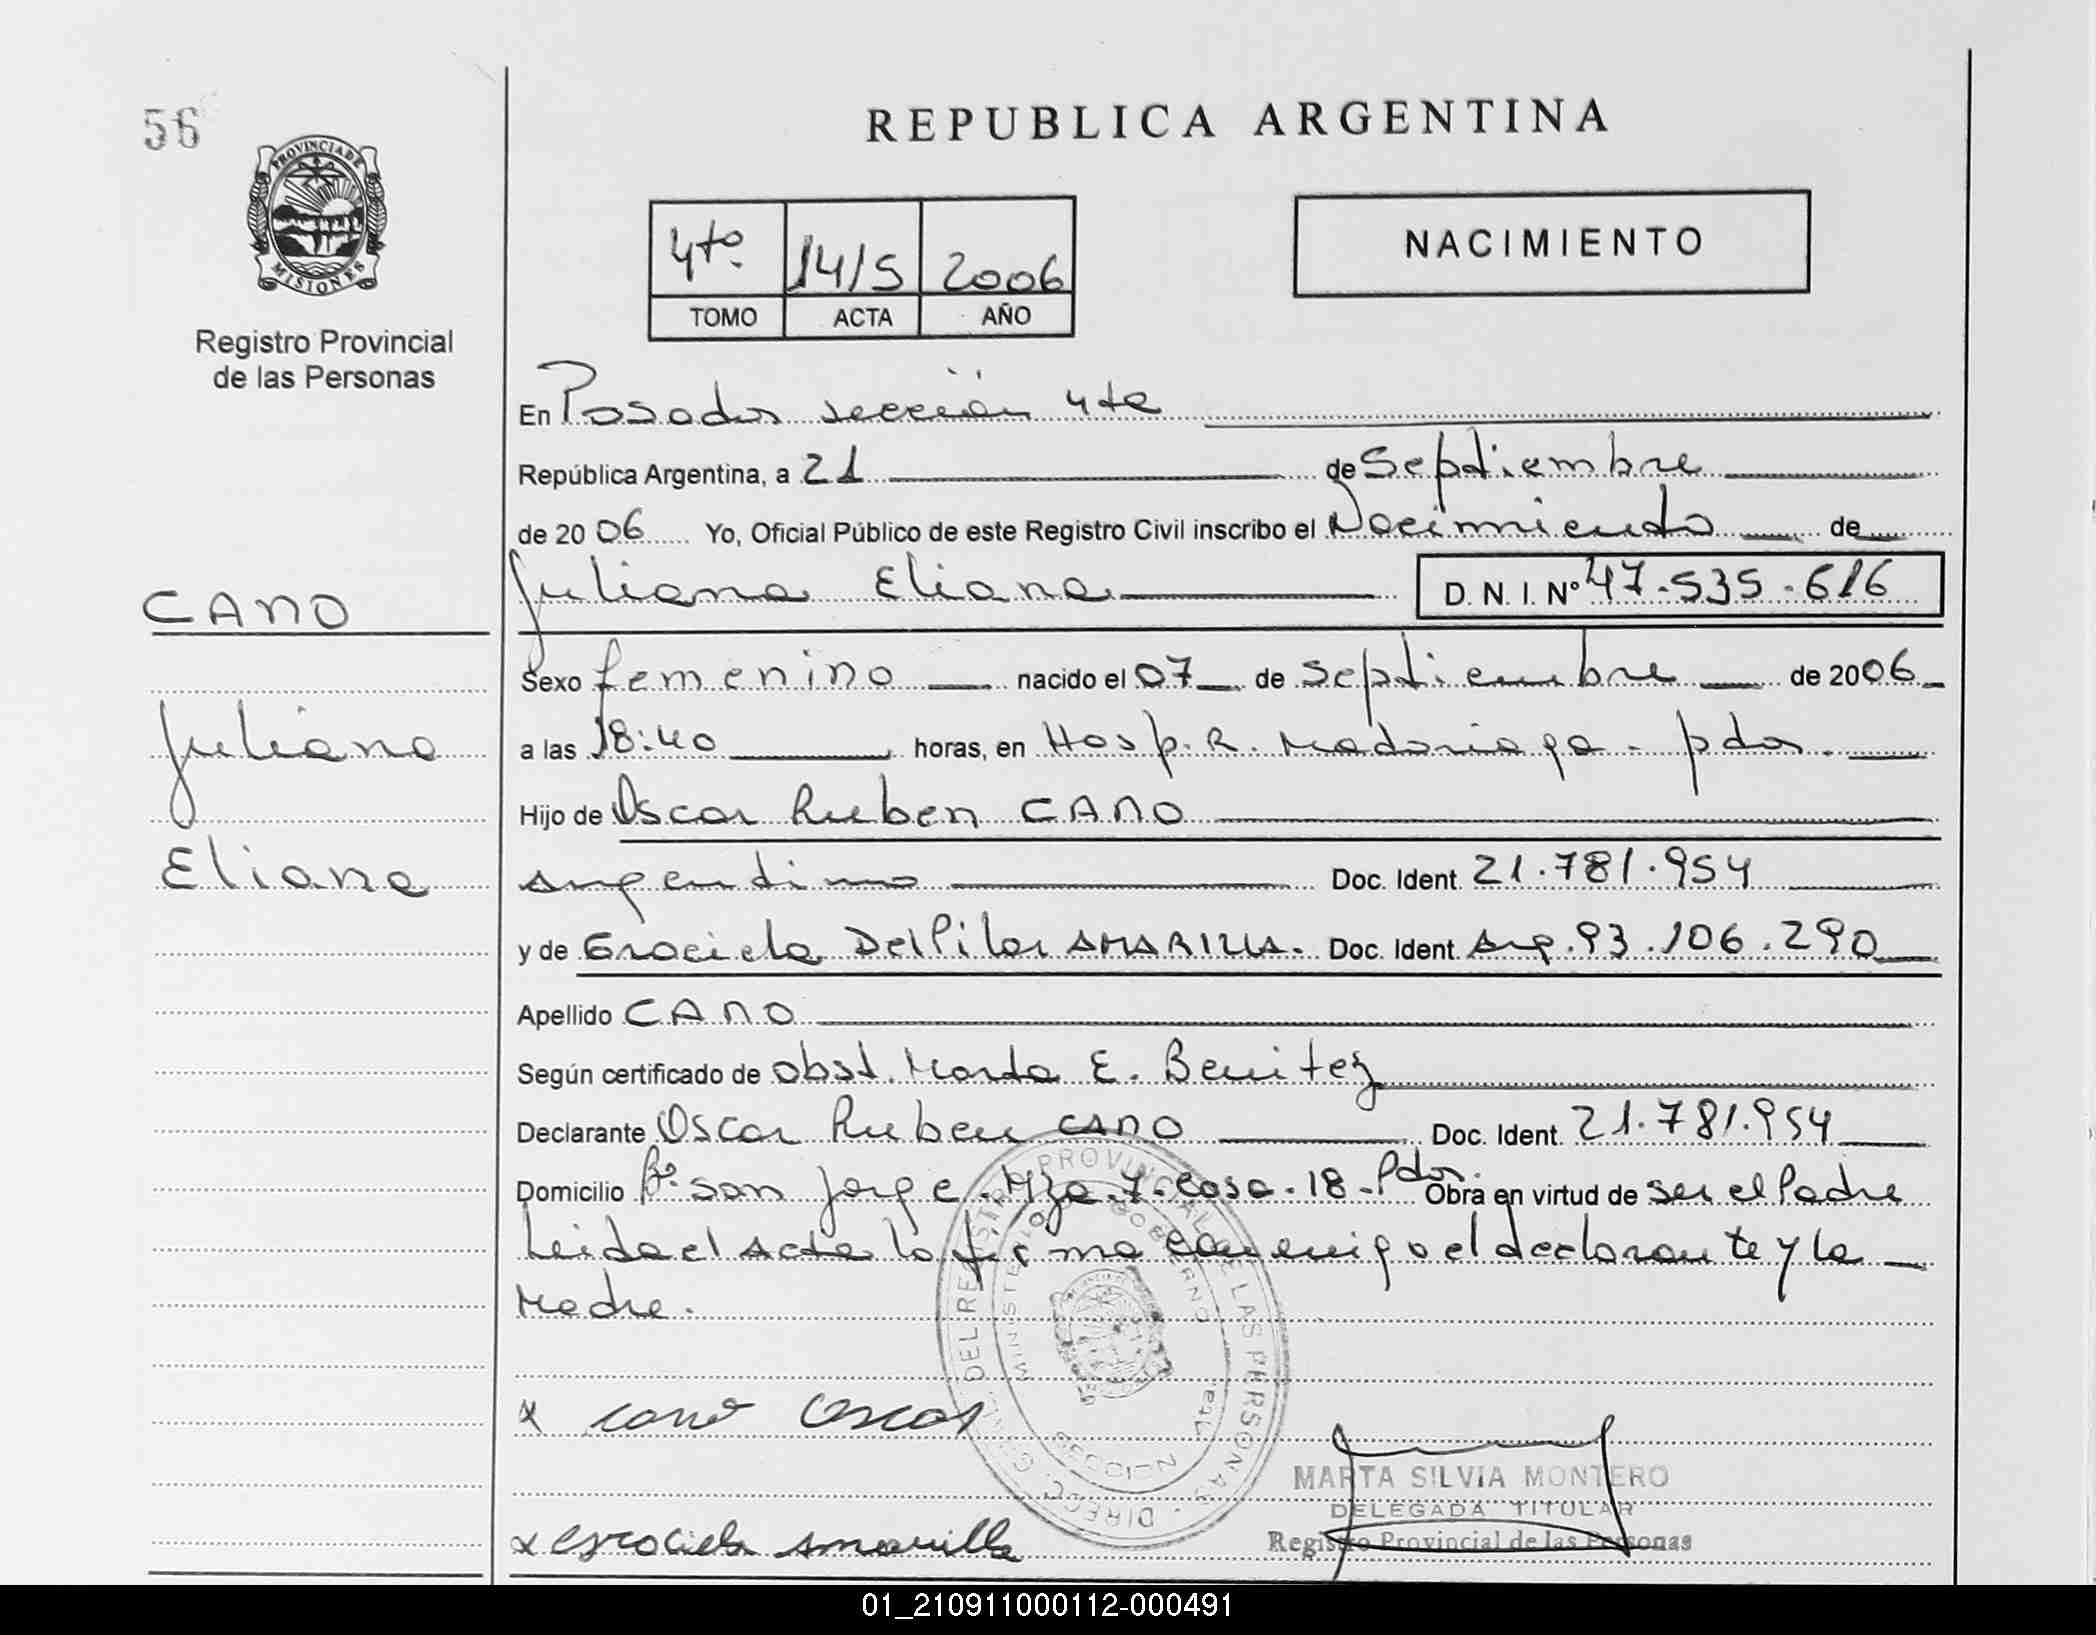 56
REPUBLICA ARGENTINA
PROVINCIA DE MISIONES
Registro Provincial
de las Personas
4to. 14/S 2006
TOMO ACTA AÑO
NACIMIENTO
En Posadas sección 4ta
República Argentina, a 21 de Septiembre
de 2006 Yo, Oficial Público de este Registro Civil inscribo el Nacimiento de
CANO
Juliana Eliana D. N. I. Nº 47.535.616
Sexo femenino nacido el 07 de Septiembre de 2006
Juliana
a las 18:40 horas, en Hosp. R. Madariaga - pdas.
Hijo de Oscar Ruben CANO
Eliana
argentino Doc. Ident. 21.781.954
y de Graciela Del Pilar AMARILLA. Doc. Ident. Arg. 93.106.290
Apellido CANO
Según certificado de obst. Marta E. Benitez
Declarante Oscar Ruben CANO Doc. Ident. 21.781.954
Domicilio Bº San Jorge - Mza. 7 - casa - 18 - Pdas. Obra en virtud de ser el Padre
Leida el Acta la firma conmigo el declarante y la
Madre.
DIRECC. GRAL. DEL REGISTRO PROVINCIAL DE LAS PERSONAS
MINISTERIO DE GOBIERNO
SECCION 4ta.
x cano oscar
MARTA SILVIA MONTERO
DELEGADA TITULAR
Registro Provincial de las Personas
x Graciela Amarilla
01_210911000112-000491